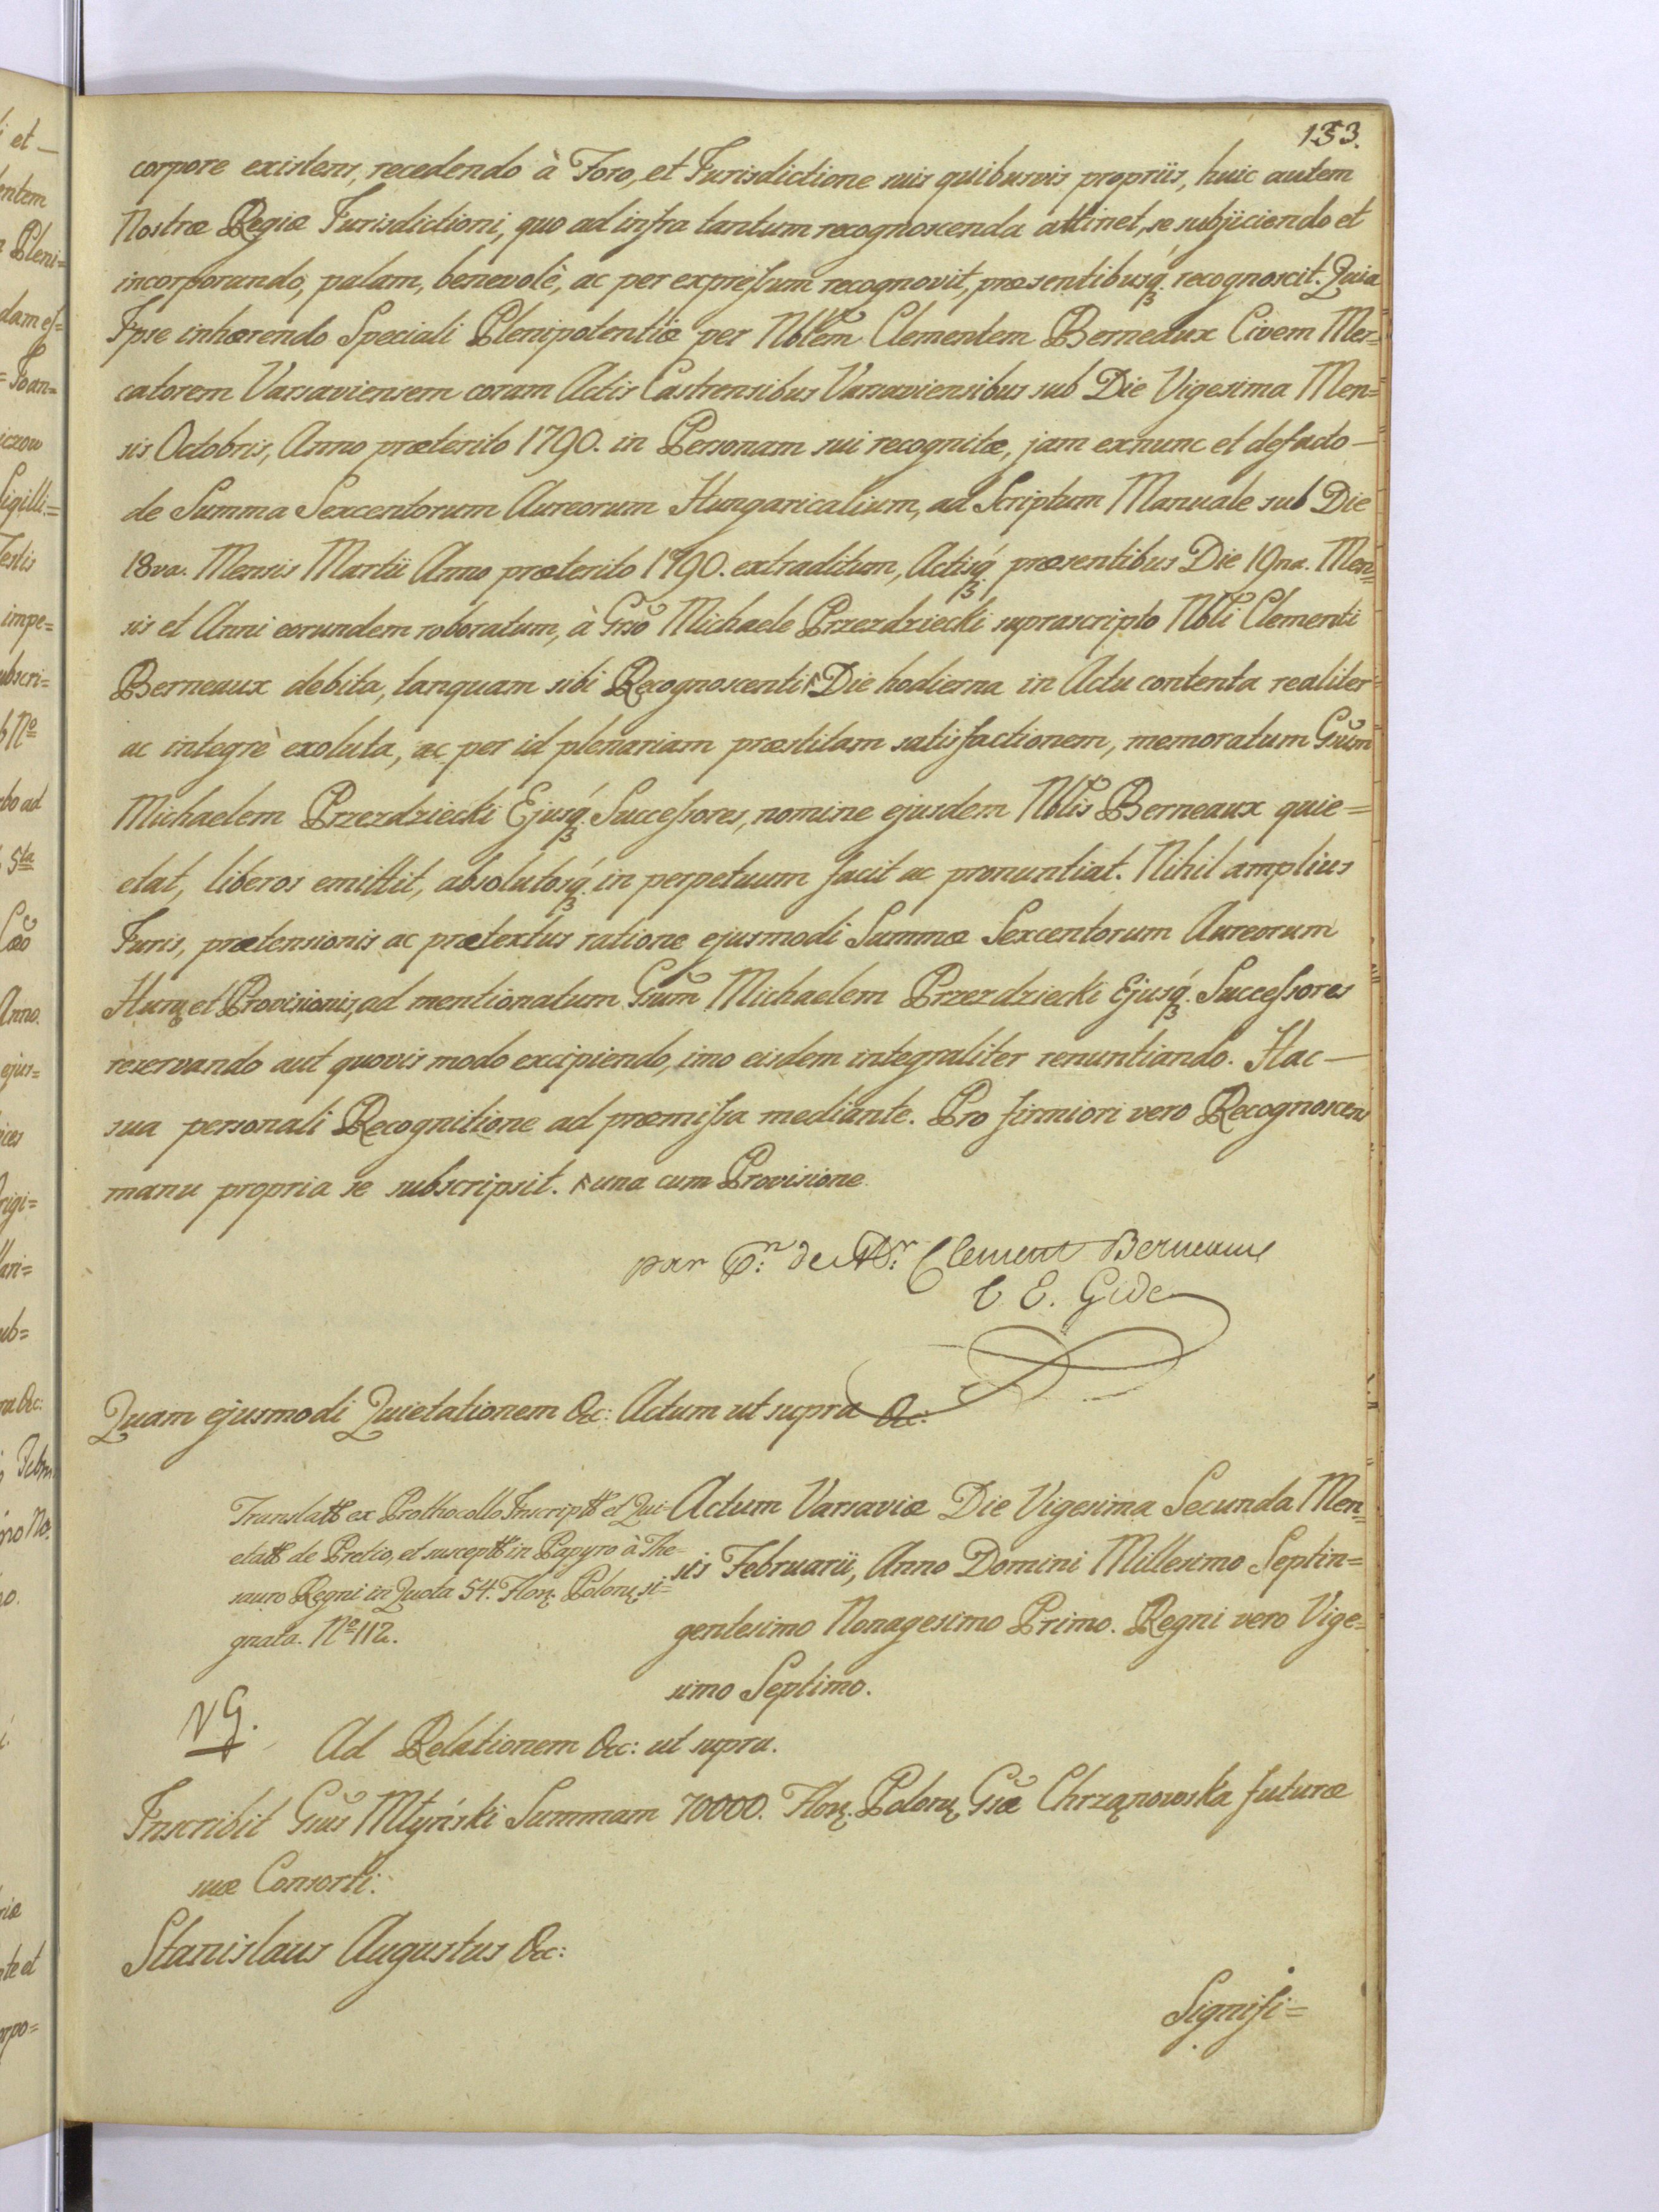 133.
corpore existens, recedendo à Foro, et Jurisdictione suis quibusvis propriis, huic autem
Nostræ Regiæ Jurisdictioni, quo ad infra tantum recognoscenda attinet, se subjiciendo et
incorporando, palam, benevolè, ac per expreſsum recognovit, præsentibusq́ꝫ recognoscit. Quia
Ipse inhærendo Speciali Plenipotentiæ per Nb̃lem Clementem Berneaux Civem Mer=
catorem Varsaviensem coram Actis Castrensibus Varsaviensibus sub Die Vigesima Men=
sis Octobris, Anno præterito 1790. in Personam sui recognitæ, jam exnunc et defacto —
de Summa Sexcentorum Aureorum Hungaricalium, ad Scriptum Manuale sub Die
18va. Mensis Martii Anno præterito 1790. extraditum, Actisq́ꝫ præsentibus Die 19na. Men=
sis et Anni eorundem roboratum, à Grso Michaele Przezdziecki suprascripto Nb̃li Clementi
Berneaux debita, tanquam sibi Recognoscenti ⌃ Die hodierna in Actu contenta realiter
ac integrè exoluta, ac per id plenariam præstitam satisfactionem, memoratum Gsũm
Michaelem Przezdziecki Ejusq́ꝫ Succeſsores, nomine ejusdem Nb̃lis Berneaux quie=
etat, liberos emittit, absolutosq́ꝫ in perpetuum facit ac pronuntiat. Nihil amplius
Juris, prætensionis ac prætextus ratione ejusmodi Summæ Sexcentorum Aureorum
Hung et Provisionis, ad mentionatum Gsũm Michaelem Przezdziecki Ejusq́ꝫ Succeſsores
reservando aut quovis modo excipiendo, imo eisdem integraliter renuntiando. Hac —
sua personali Recognitione ad præmiſsa mediante. Pro firmiori vero Recognoscens
manu propria se subscripsit. ⌃ una cum Provisione
par Pn: de Mr: Clement Berneaux
C E. Gide
Quam ejusmodi Quietationem &c: Actum ut supra &c:
Translatt ex Prothocollo Inscriptt et Qui=
etatt de Pretio, et susceptt in Papyro à The=
sauro Regni in Quota 54. Flor. Polon. si=
gnata. No 112.
Actum Varsaviæ Die Vigesima Secunda Men=
sis Februarii, Anno Domini Millesimo Septin=
gentesimo Nonagesimo Primo. Regni vero Vige=
simo Septimo.
NG.
Ad Relationem &c: ut supra.
Inscribit Gsũs Młyński Summam 70000. Flor. Polon. Gsæ Chrzanowska futuræ
suæ Consorti.
Stanislaus Augustus &c:
Signifi=